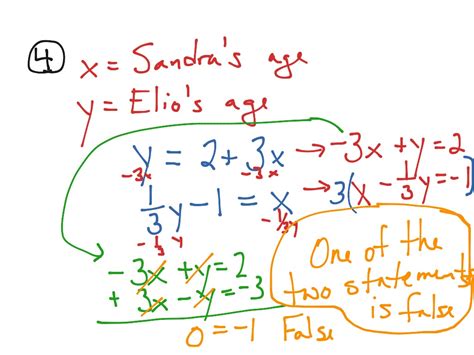 4 x = Sandra's age
y = Elio's age
y = 2 + 3x → -3x + y = 2
-3x -3x
1/3 y - 1 = x → 3(x - 1/3 y = -1)
-1/3 y -1/3 y
-3x + y = 2
+ 3x - y = -3
0 = -1 False
One of the
two statements
is false